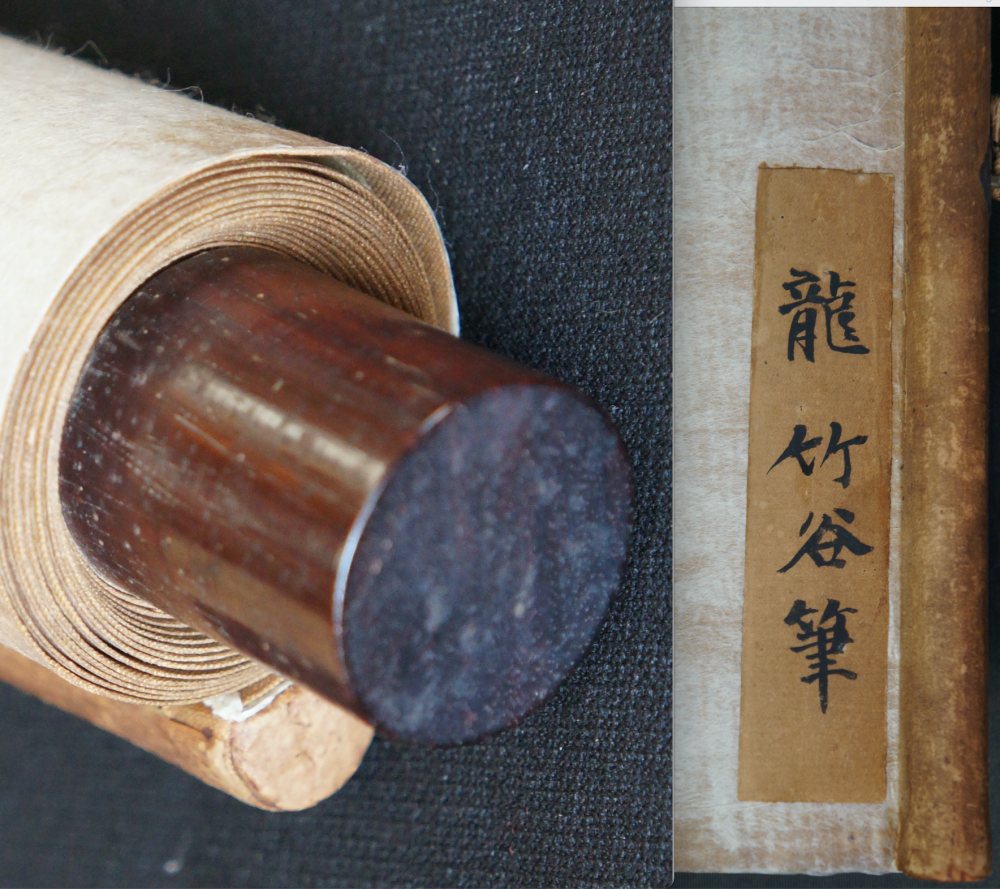 龍 竹谷筆